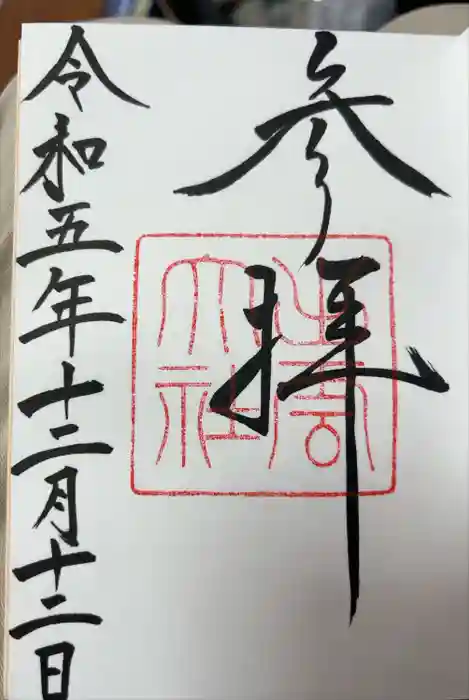 参拝
大社
令和五年十二月十二日